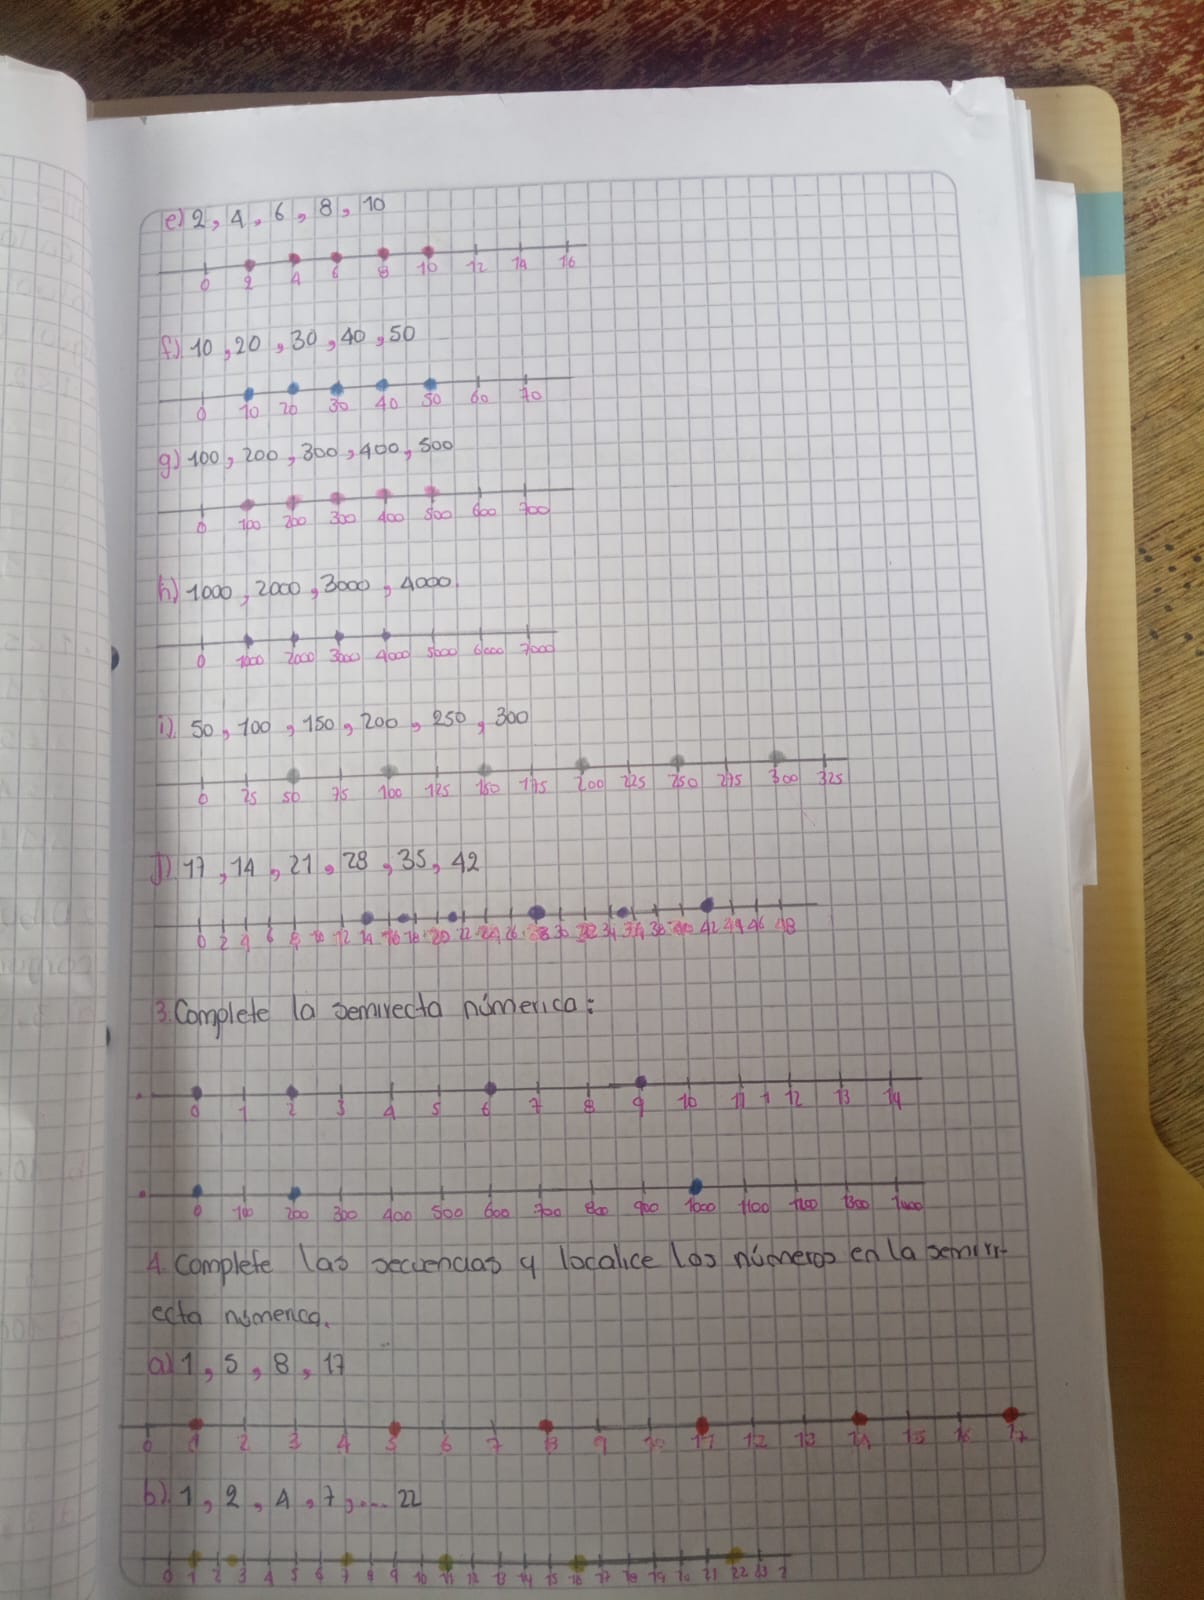 e) 2, 4, 6, 8, 10
0 2 4 6 8 10 12 14 16
f) 10, 20, 30, 40, 50
0 10 20 30 40 50 60 70
g) 100, 200, 300, 400, 500
0 100 200 300 400 500 600 700
h) 1000, 2000, 3000, 4000.
0 1000 2000 3000 4000 5000 6000 7000
i) 50, 100, 150, 200, 250, 300
0 25 50 75 100 125 150 175 200 225 250 275 300 325
j) 17, 14, 21, 28, 35, 42
0 2 4 6 8 10 12 14 16 18 20 22 24 26 28 30 32 34 38 40 42 44 46 48
3. Complete la semirecta númerica:
0 1 2 3 4 5 6 7 8 9 10 11 12 13 14
0 100 200 300 400 500 600 700 800 900 1000 1100 1200 1300 1400
4. Complete las secuencias y localice los números en la semirr-
ecta númerica.
a) 1, 5, 8, 17
0 1 2 3 4 5 6 7 8 9 10 11 12 13 14 15 16 17
b) 1, 2, 4, 7, .... 22
0 1 2 3 4 5 6 7 8 9 10 11 12 13 14 15 16 17 18 19 20 21 22 23